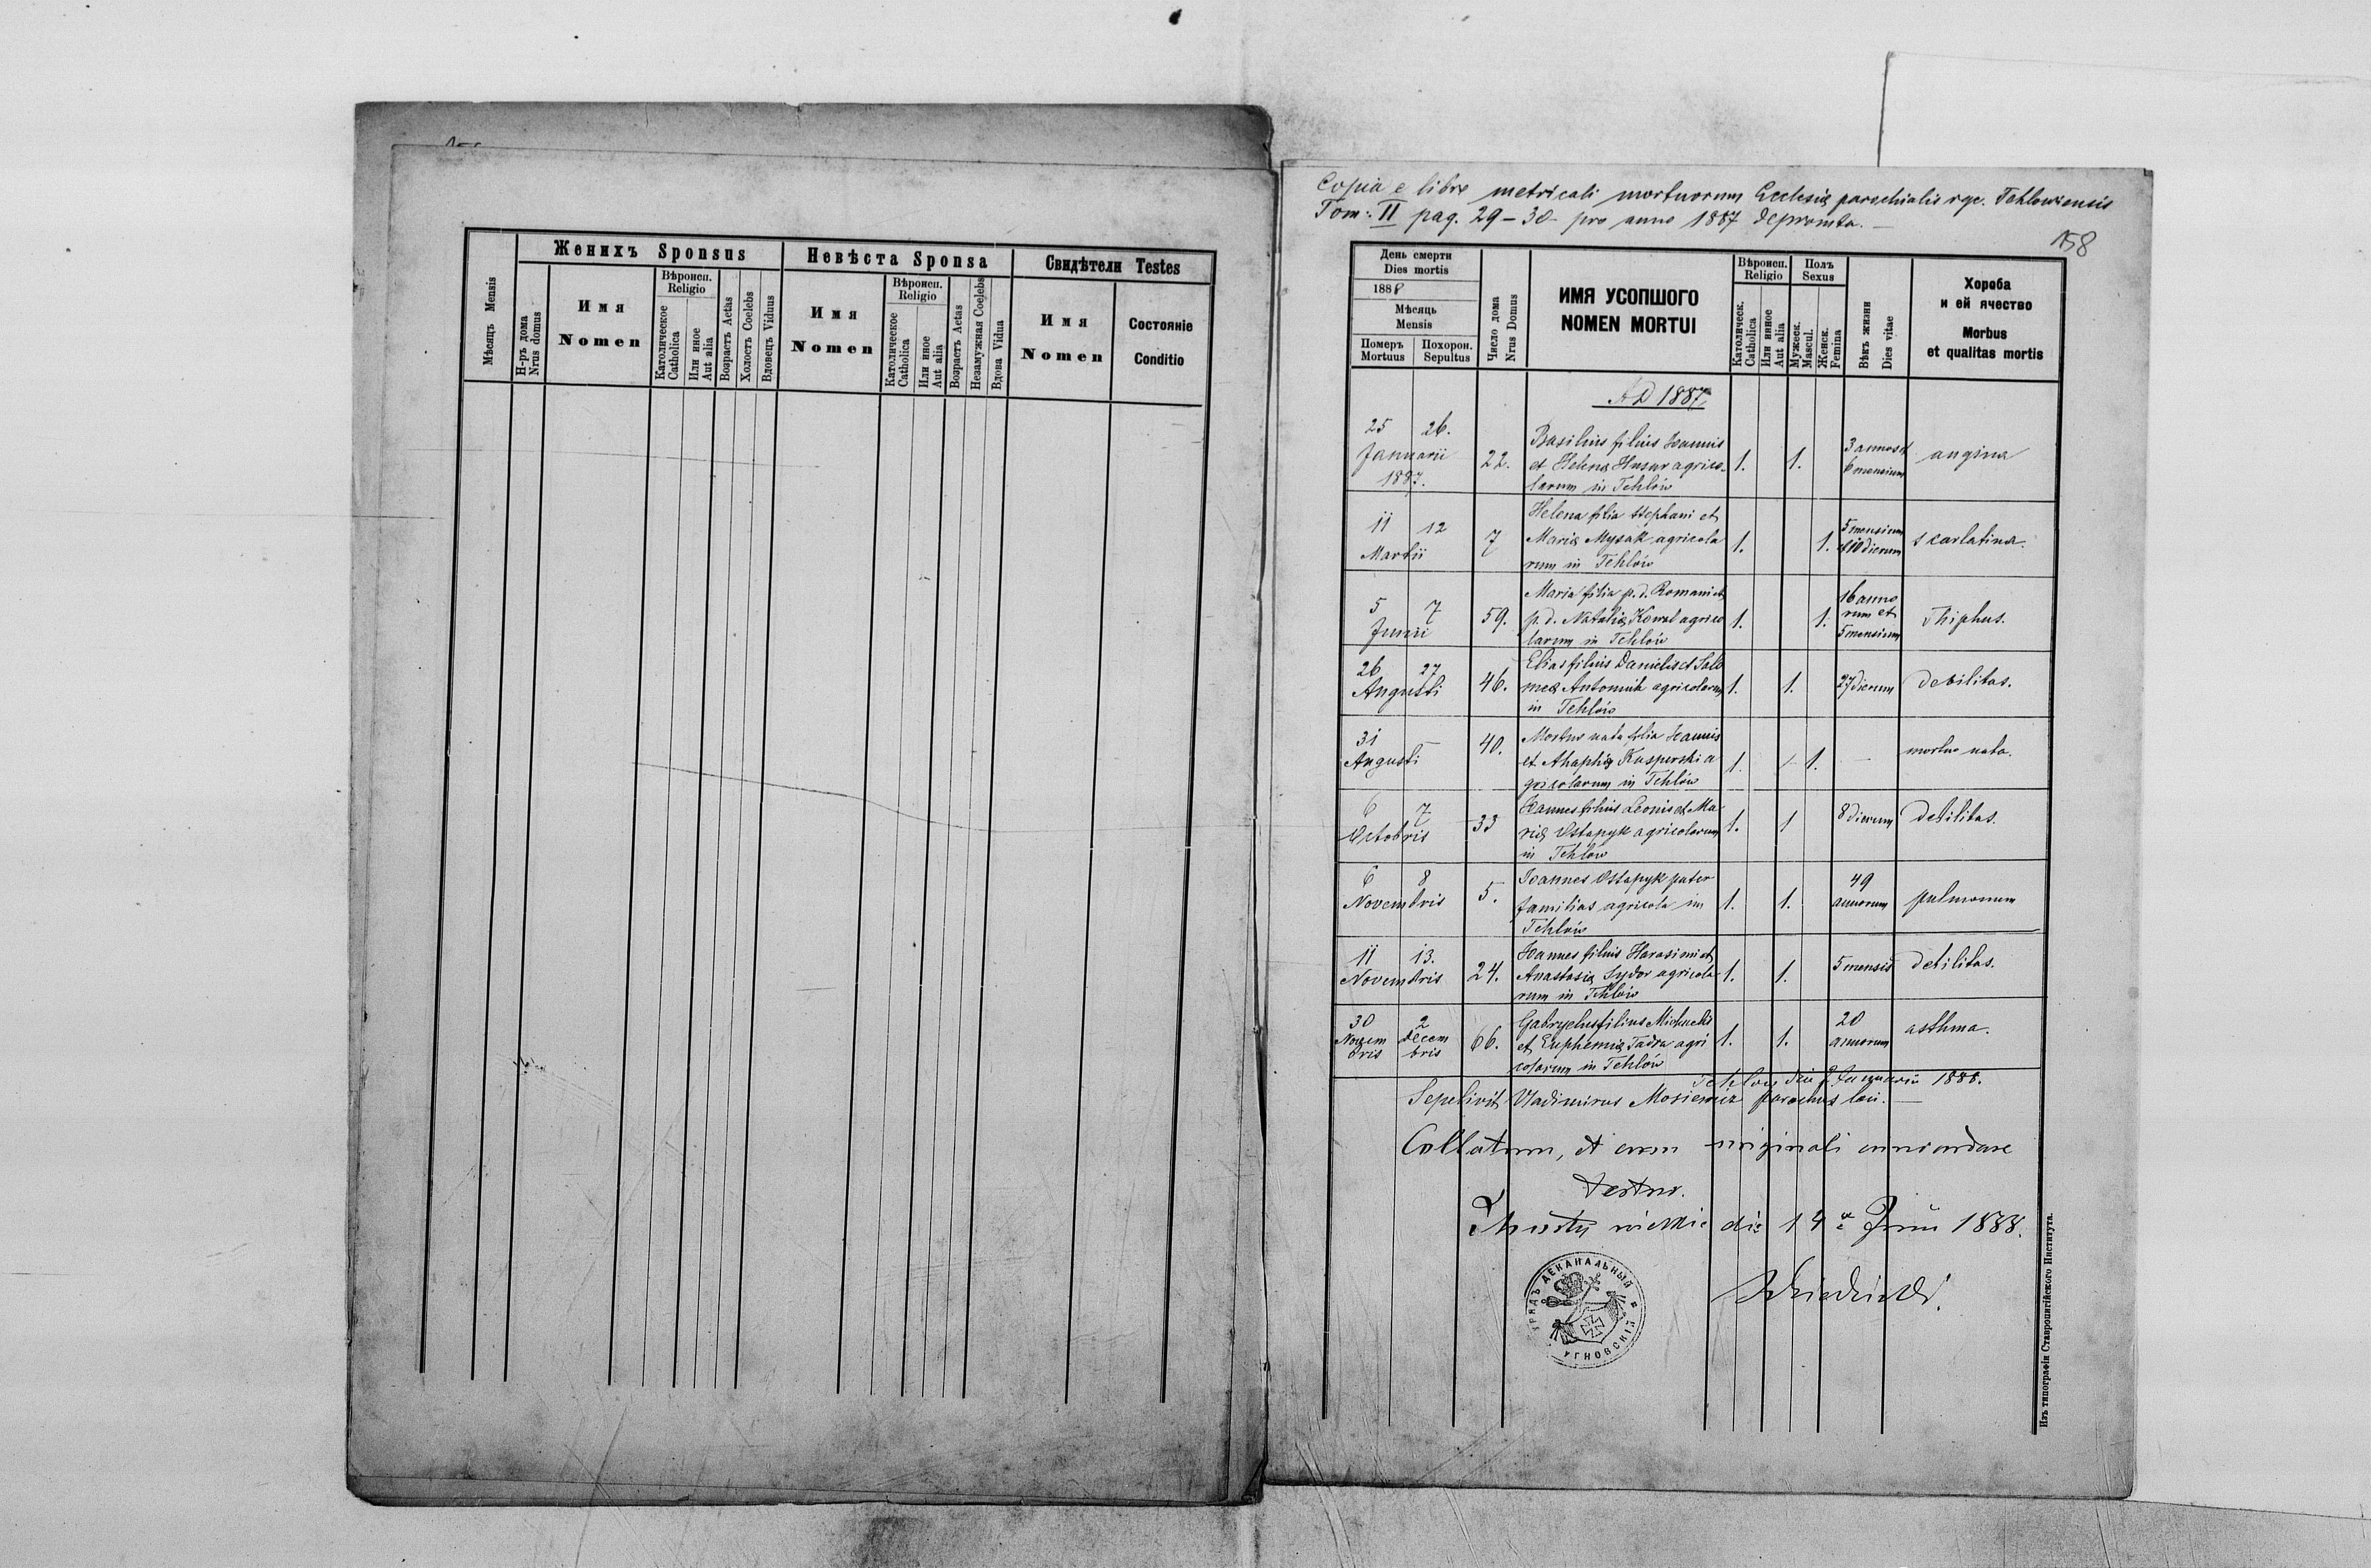 Женихъ Sponsus
Невѣста Sponsa
Свидѣтели Testes
Мѣсяцъ Mensis
Н-ръ дома
Nrus domus
Имя
Nomen
Вѣроисп.
Religio
Католическое
Catholica
Или иное
Aut alia
Возрастъ Aetas
Холостъ Coelebs
Вдовецъ Viduus
Имя
Nomen
Вѣроисп.
Religio
Католическое
Catholica
Или иное
Aut alia
Возрастъ Aetas
Незамужная Coelebs
Вдова Vidua
Имя
Nomen
Состояніе
Conditio
Copia e libro metricali mortuorum Ecclesiæ parochialis rgc. Tehloviensis
Tom: II pag. 29-30 pro anno 1887 depromta.
158
День смерти
Dies mortis
188
Мѣсяць
Mensis
Померъ
Mortuus
Похорон.
Sepultus
Число дома
Nrus Domus
ИМЯ УСОПШОГО
NOMEN MORTUI
Вѣроисп.
Religio
Католическ.
Catholica
Или инное
Aut alia
Полъ
Sexus
Мужеск.
Mascul.
Женск.
Femina
Вѣкъ жизни
Dies vitae
Хороба
и ей ячество
Morbus
et qualitas mortis
AD 1887
25 26.
Januarii
1887.
22.
Basilius filius Joannis
et Helenæ Husar agrico-
larum in Tehlów
1. 1.
3 annos et
6 mensium
angina
11 12
Martii
7
Helena filia Stephani et
Mariæ Mysak agricola
rum in Tehlów
1. 1.
5 mensium
et 10 dierum
scarlatina.
5 7
Junii
59.
Maria filia p.d. Romani et
p.d. Nataliæ Kowal agrico
larum in Tehlów
1. 1.
16 anno
rum et
5 mensium
Thiphus.
26 27
Augusti
46.
Elias filius Danielis et Salo
meæ Antoniuk agricolarum
in Tehlów
1. 1.
27 dierum
debilitas.
31
Augusti
40.
Mortuo nata filia Joannis
et Ahaphiæ Kasperski a
gricolarum in Tehlów
1. 1.
mortuo nata.
6 7
Octobris
33
Joannes filius Leonis et Ma
riæ Ostapyk agricolarum
in Tehlów
1. 1
8 dierum
debilitas.
6 8
Novembris
5.
Joannes Ostapyk pater
familias agricola in
Tehlów
1. 1.
49
annorum
pulmonum
11 13.
Novembris
24.
Joannes filius Harasimi et
Anastasiæ Sydor agricola
rum in Tehlów
1. 1.
5 mensis
debilitas.
30 2
Novem Decem
bris bris
66.
Gabryelus filius Michaelis
et Euphemiæ Tadra agri
colarum in Tehlów
1. 1.
20
annorum
asthma.
Tehlów die Januarii 1888.
Sepelivit Vladimirus Mosiewicz parochus loci.
Collatum, et cum originali concordare
testor.
die 14 Junii 1888.
УРЯДЪ ДЕКАНАЛЬНЫЙ УГНОВСКІЙ
Изъ типографіи Ставропигійского Института.